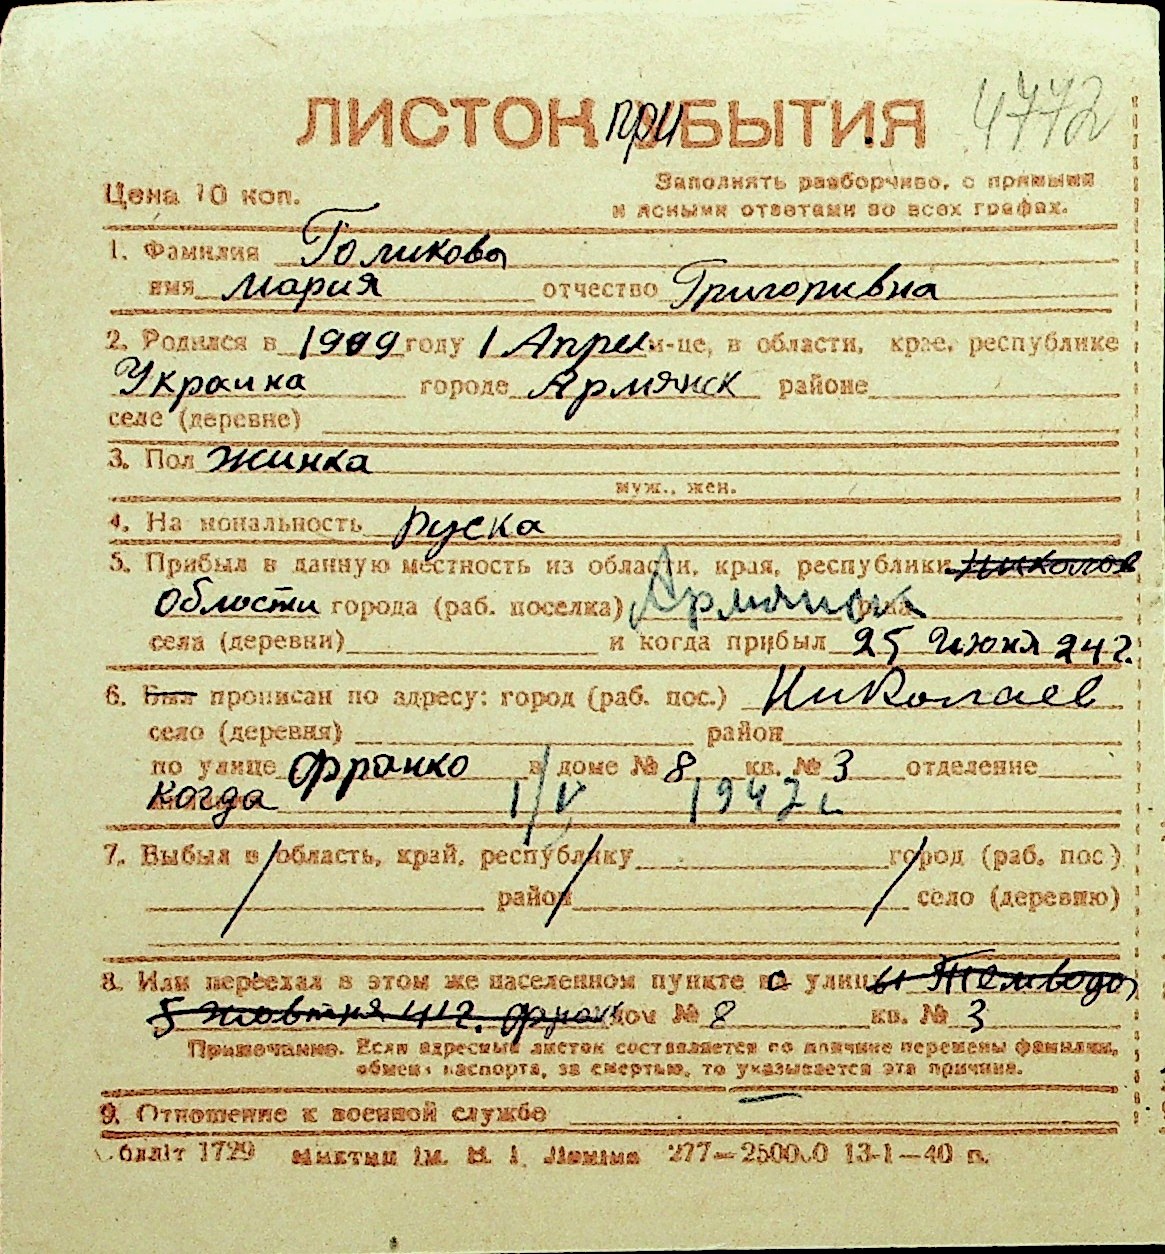 ЛИСТОК прибЫТИЯ 4772
Цена 10 коп.
Заполнять разборчиво, с прямыми
и ясными ответами во всех графах.
1. Фамилия Голикова
имя Мария отчество Григоривна
2. Родился в 1909 году 1 Апрел м-це, в области, крае, республике
Украина городе Армянск районе
селе (деревне)
3. Пол жинка
муж., жен.
4. Национальность руска
5. Прибыл в данную местность из области, края, республики Николов
Области города (раб. поселка) Армянск
села (деревни) и когда прибыл 25 Июня 24 г.
6. Был прописан по адресу: город (раб. пос.) Николаев
село (деревня) район
по улице Франко в доме № 8 кв. № 3 отделение
когда 1/V 1942 г.
7. Выбыл в область, край, республику город (раб. пос.)
район село (деревню)
8. Или переехал в этом же населенном пункте с улицы Темвода
5 жовтня 41 г. Франк дом № 8 кв. № 3
Примечание. Если адресный листок составляется по причине перемены фамилии,
обмена паспорта, за смертью, то указывается эта причина.
9. Отношение к военной службе
Обллiт 1729 iм. В. I. Ленiна 277—250000 13-1—40 р.